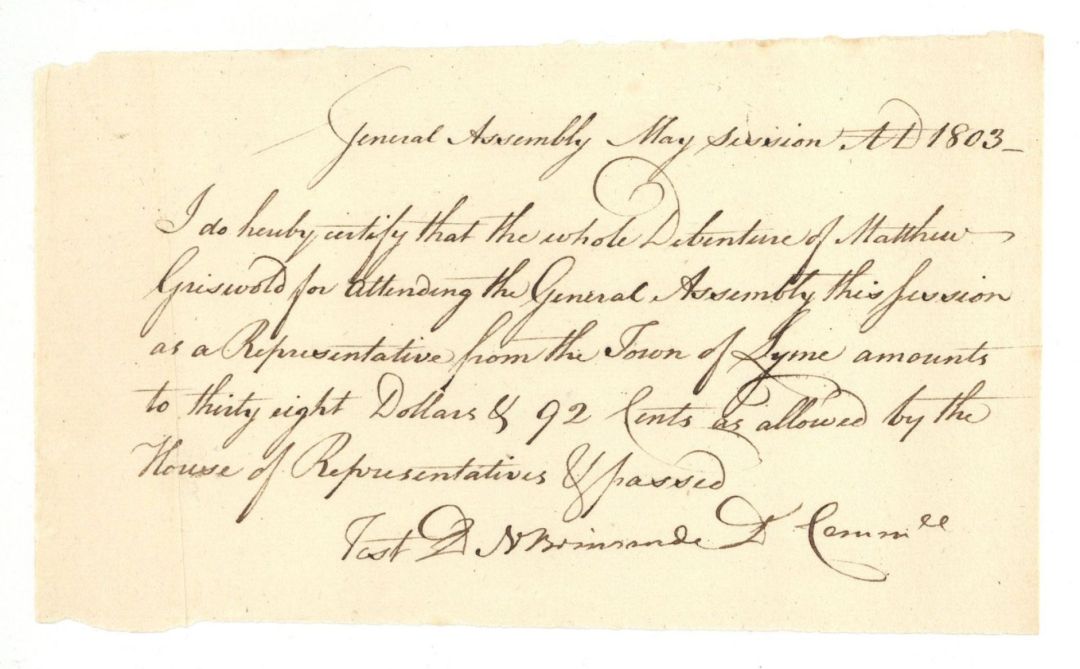 General Assembly May Session AD 1803
I do hereby certify that the whole Debenture of Matthew
Griswold for attending the General Assembly this Session
as a Representative from the Town of Lyme amounts
to thirty eight Dollars & 92 Cents as allowed by the
House of Representatives & passed
Test D N Brinsmade D Commee